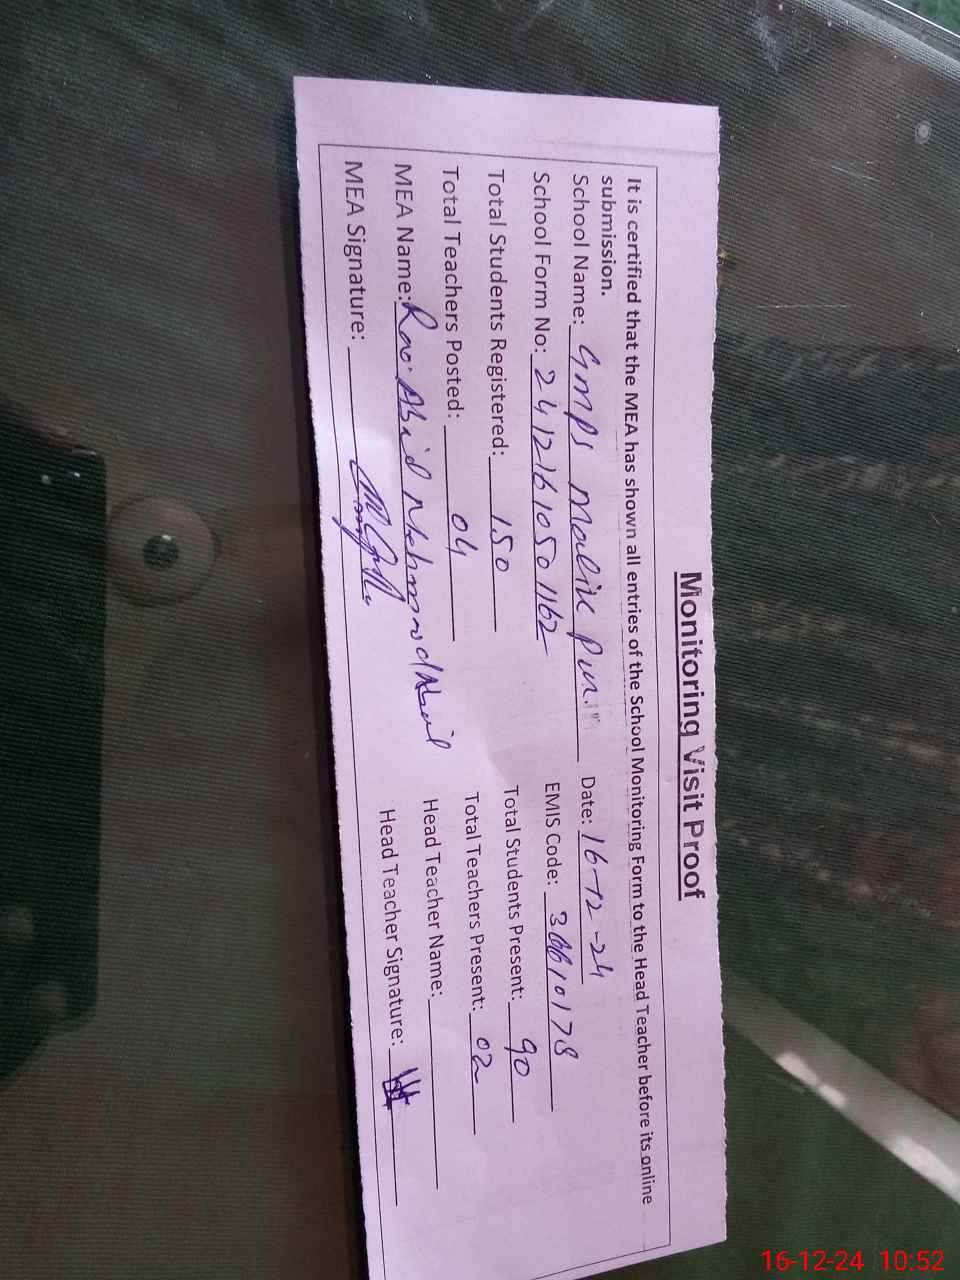 Monitoring Visit Proof
It is certified that the MEA has shown all entries of the School Monitoring Form to the Head Teacher before its online
submission.
School Name: GMPS Malik Pur. Date: 16-12-24
School Form No: 24121610501162 EMIS Code: 36610178
Total Students Registered: 150 Total Students Present: 90
Total Teachers Posted: 04 Total Teachers Present: 02
MEA Name: Rao Abid Mehmood Head Teacher Name:
MEA Signature: Head Teacher Signature:
16-12-24 10:52